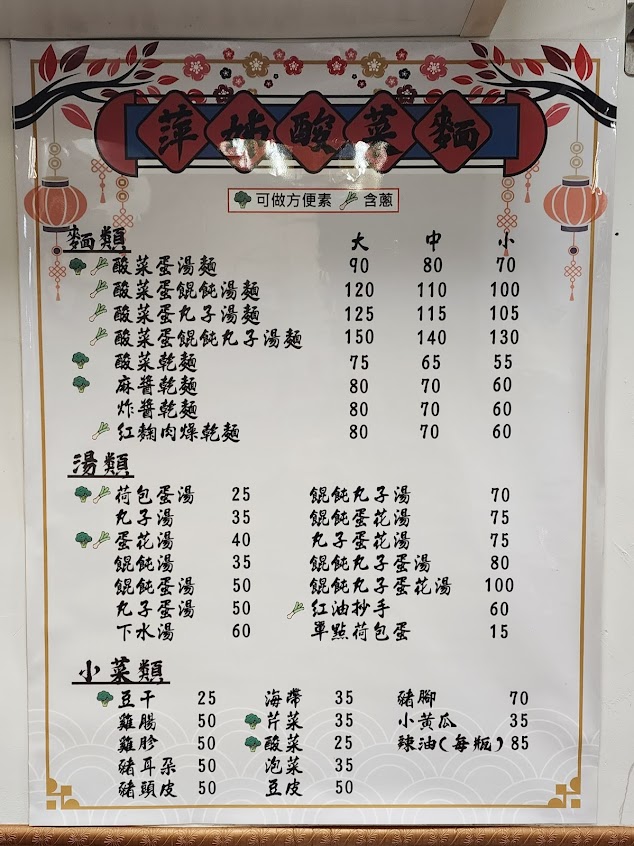 萍姊酸菜麵
可做方便素 含蔥
麵類 大 中 小
酸菜蛋湯麵 90 80 70
酸菜蛋餛飩湯麵 120 110 100
酸菜蛋丸子湯麵 125 115 105
酸菜蛋餛飩丸子湯麵 150 140 130
酸菜乾麵 75 65 55
麻醬乾麵 80 70 60
炸醬乾麵 80 70 60
紅麴肉燥乾麵 80 70 60
湯類
荷包蛋湯 25 餛飩丸子湯 70
丸子湯 35 餛飩蛋花湯 75
蛋花湯 40 丸子蛋花湯 75
餛飩湯 35 餛飩丸子蛋湯 80
餛飩蛋湯 50 餛飩丸子蛋花湯 100
丸子蛋湯 50 紅油抄手 60
下水湯 60 單點荷包蛋 15
小菜類
豆干 25 海帶 35 豬腳 70
雞腸 50 芹菜 35 小黃瓜 35
雞胗 50 酸菜 25 辣油(每瓶) 85
豬耳朵 50 泡菜 35
豬頭皮 50 豆皮 50